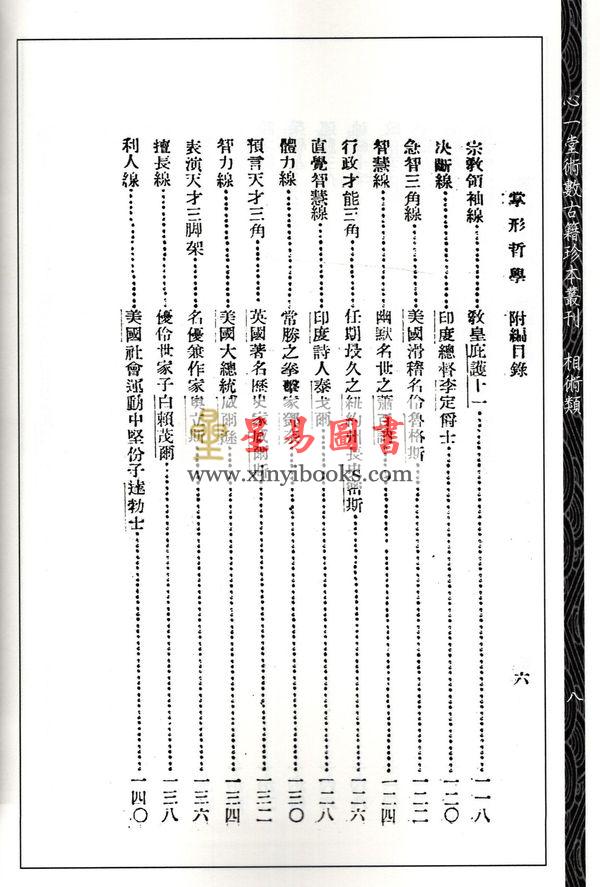 心一堂術數古籍珍本叢刊 相術類 八
掌形哲學 附編目錄 六
宗教領袖線 教皇庇護十一 一一八
決斷線 印度總督李定爵士 一二〇
急智三角線 美國滑稽名伶魯格斯 一二二
智慧線 幽默名世之蕭 一二四
行政才能三角 任期最久之紐約州長史密斯 一二六
直覺智慧線 印度詩人泰戈爾 一二八
體力線 常勝之拳擊家 一三〇
預言天才三角 英國著名歷史家威爾斯 一三二
智力線 美國大總統威爾遜 一三四
表演天才三脚架 名優兼作家 斯 一三六
擅長線 優伶世家子白賴茂爾 一三八
利人線 美國社會運動中堅份子達勃士 一四〇
星易圖書
www.xinyibooks.com